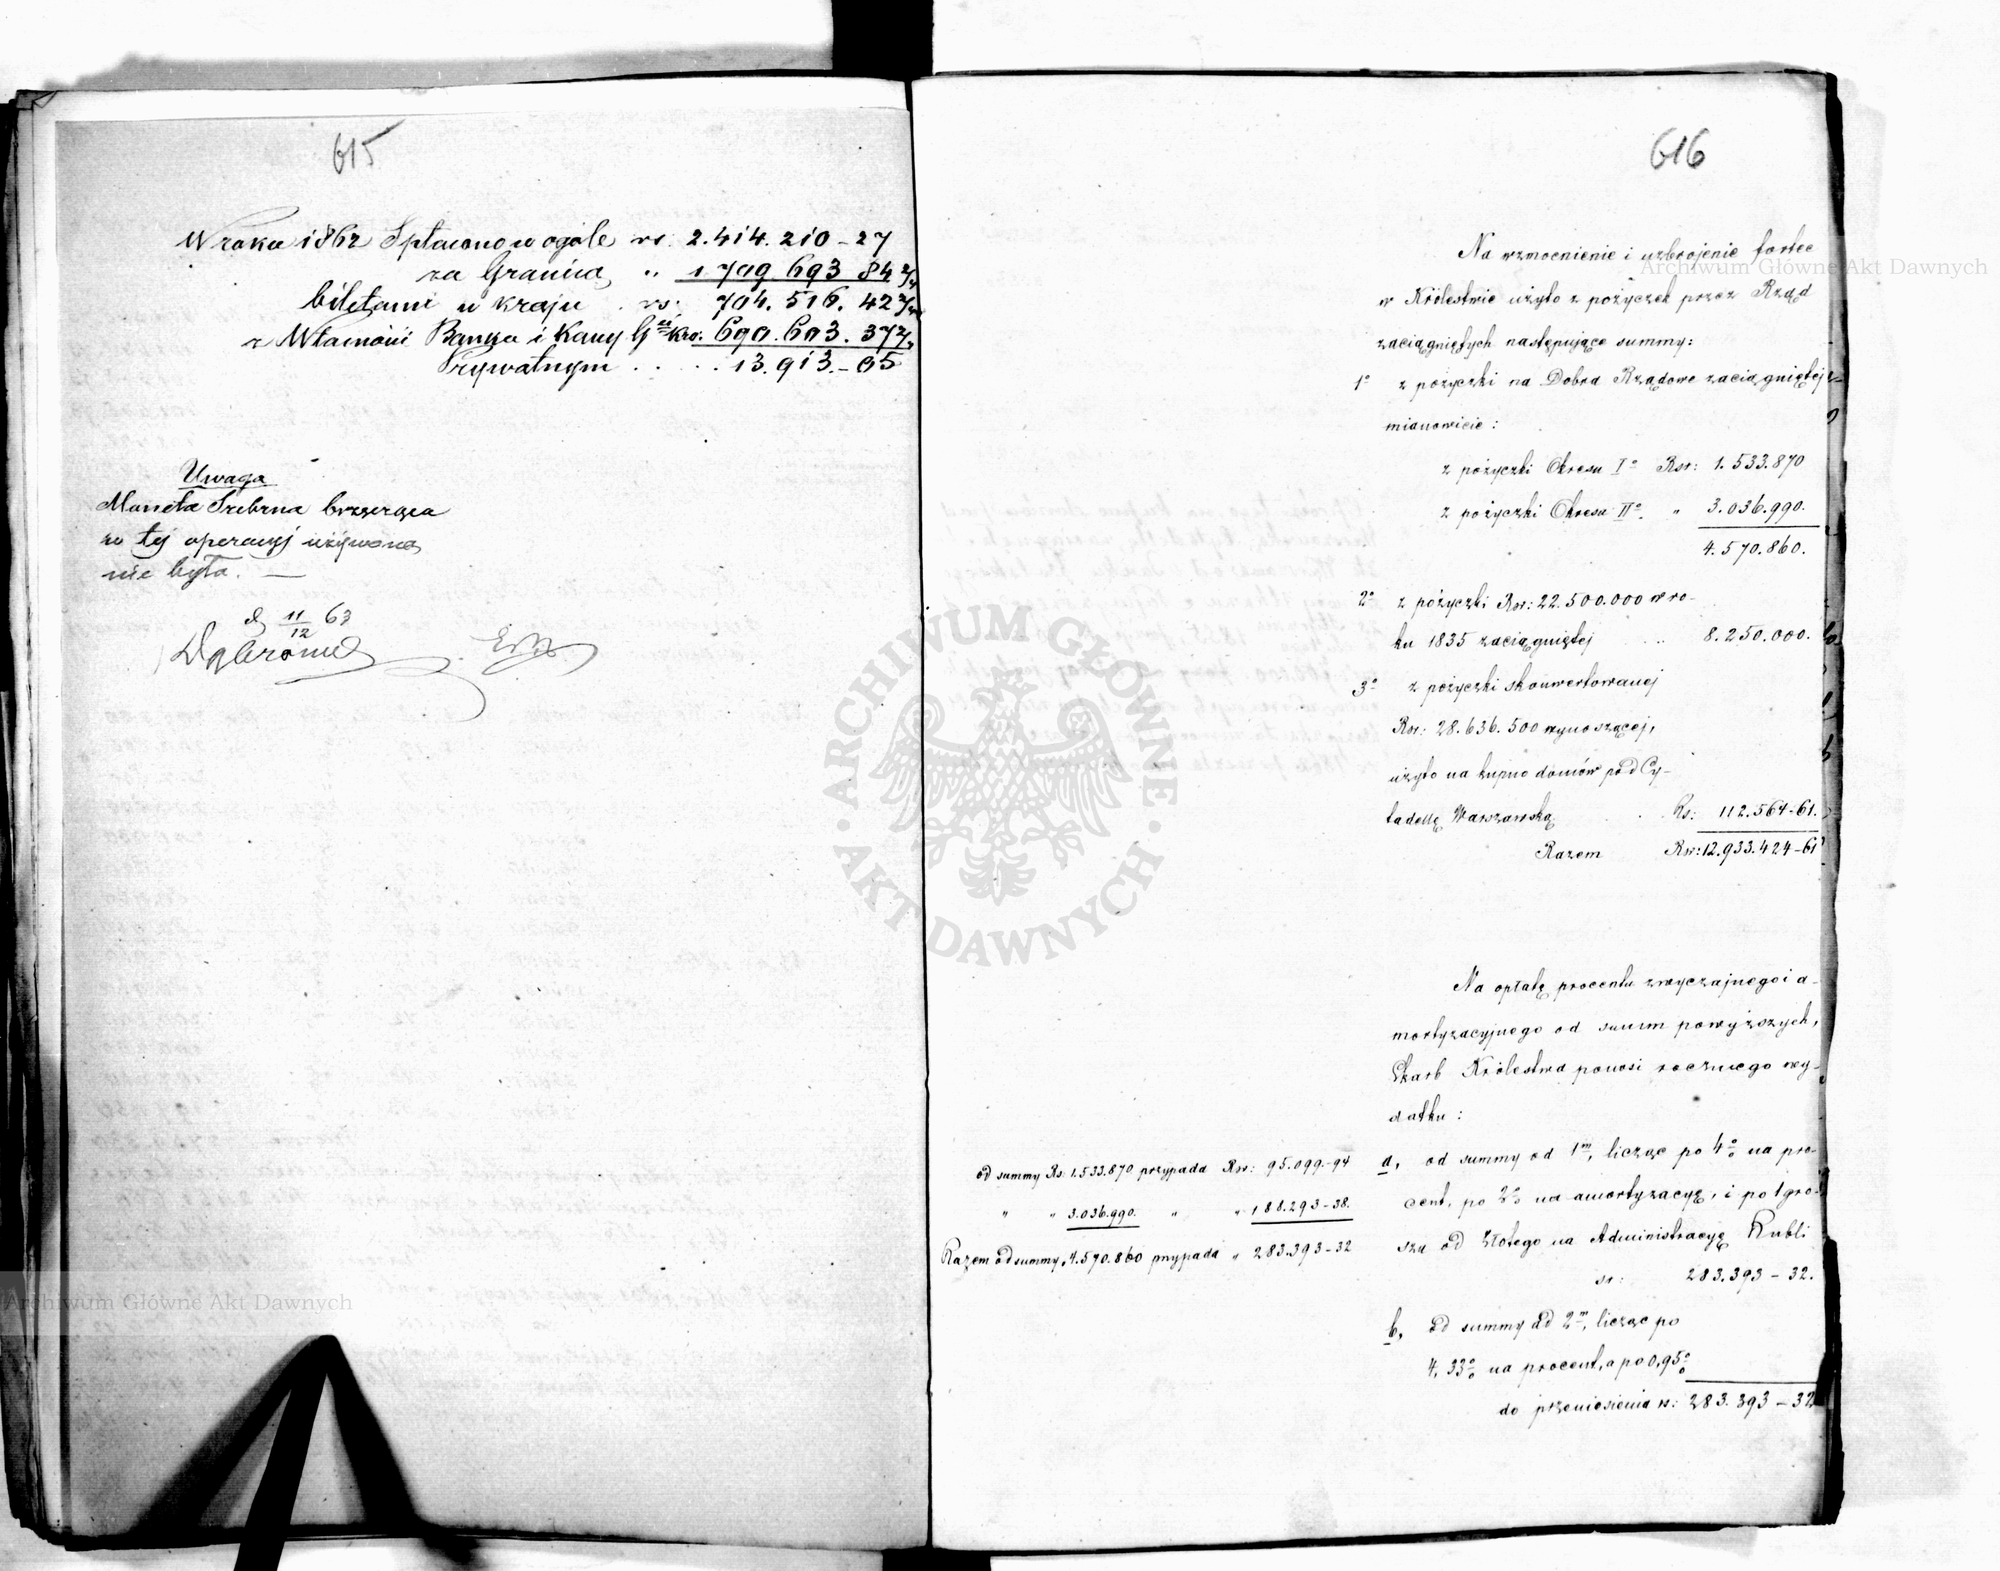 615
W roku 1862 Spłacono w ogóle rs. 2.414.210 - 27
za Granicą " 1 709 693 84 1/2
biletami w kraju . rs. 704. 516. 42 1/2
z Własności Banku i Kassy Gł Kro. 690.603. 37 1/2
Prywatnym . . . . . 13.913. - 05
Uwaga
Moneta Srebrna brzęcząca
w tej operacyj używaną
nie była. —
d 11/12 63
616
Na wzmocnienie i uzbrojenie fortec
w Królestwie użyto z pożyczek przez Rząd
zaciągniętych następujące summy:
1° z pożyczki na Dobra Rządowe zaciągniętej
mianowicie :
z pożyczki Okresu I° Rsr: 1.533.870
z pożyczki Okresu II°. " 3.036.990.
4.570.860.
2° z pożyczki Rsr: 22.500.000 w ro-
ku 1835 zaciągniętej . . 8.250.000.
3° z pożyczki skonwertowanej
Rsr: 28.636.500 wynoszącej,
użyto na kupno domów pod Cy-
tadellę Warszawską . . Rs: 112.564-61.
Razem Rsr: 12.933.424-61
Na opłatę procentu zwyczajnego i a-
mortyzacyjnego od summ powyższych,
Skarb Królestwa ponosi rocznego wy-
datku :
a, od summy ad 1m, licząc po 4% na pro-
cent, po 2% na amortyzacyę, i po 1 gro-
szu od Złotego na Administracyę Rubli
sr: 283.393 - 32.
b, od summy ad 2m, licząc po
4,33% na procent, a po 0,95%
do przeniesienia rs: 283.393 - 32
od summy Rs. 1.533.870 przypada Rsr: 95.099.-94
" " 3.036.990. " " 188.293-38.
Razem od summy 4.570.860 przypada " 283.393-32
ARCHIWUM GŁÓWNE AKT DAWNYCH
Archiwum Główne Akt Dawnych
Archiwum Główne Akt Dawnych